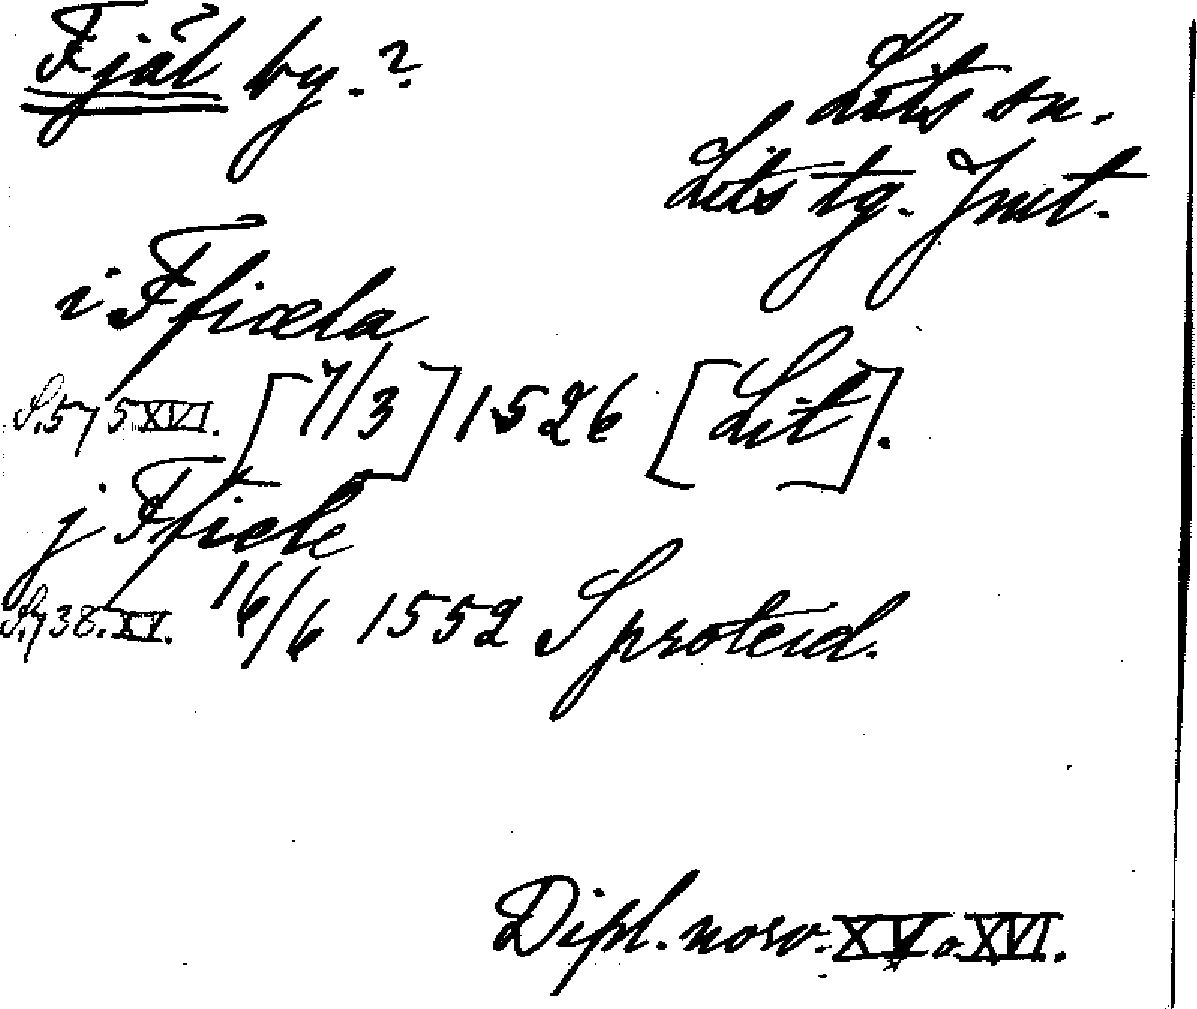 Fjäl by.?
Lits sn.
Lits tg. Jmt.
i Ffiœla
S.575 XVI. [7/3] 1526 [Lit].
j Ffiele
S.738. XV. 16/6 1552 Sproteid.
Dipl. norv. XV o. XVI.